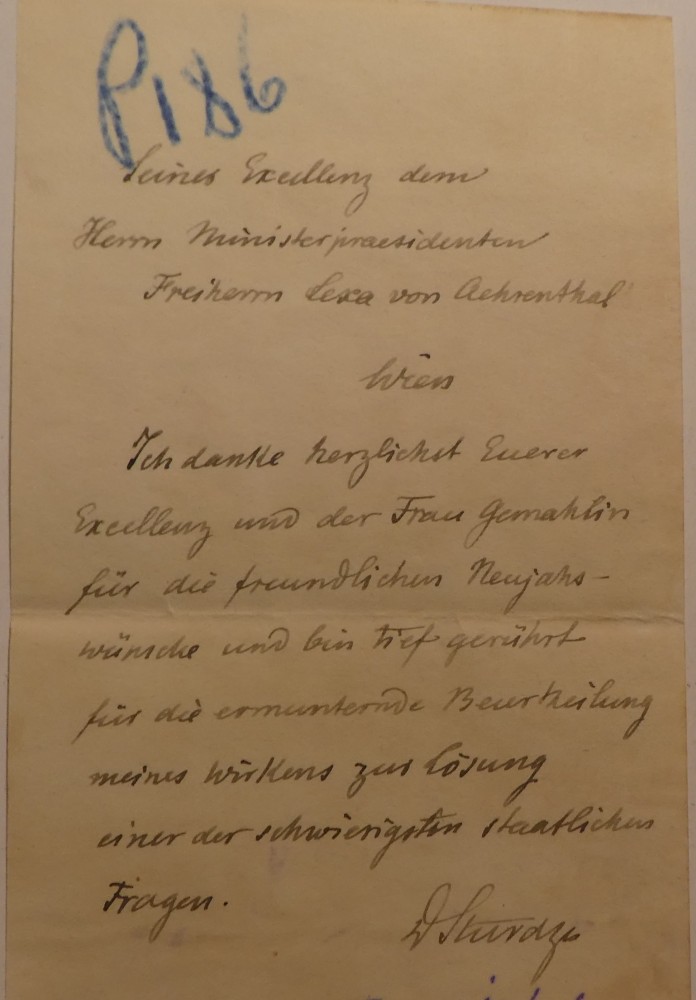 P186
Seiner Excellenz dem
Herrn Ministerpraesidenten
Freiherrn Lexa von Aehrenthal
Wien
Ich danke herzlichst Euerer
Excellenz und der Frau Gemahlin
für die freundlichen Neujahs-
wünsche und bin tief gerührt
für die ermunternde Beurtheilung
meines Wirkens zur Lösung
einer der schwierigsten staatlichen
Fragen.
D Sturdza